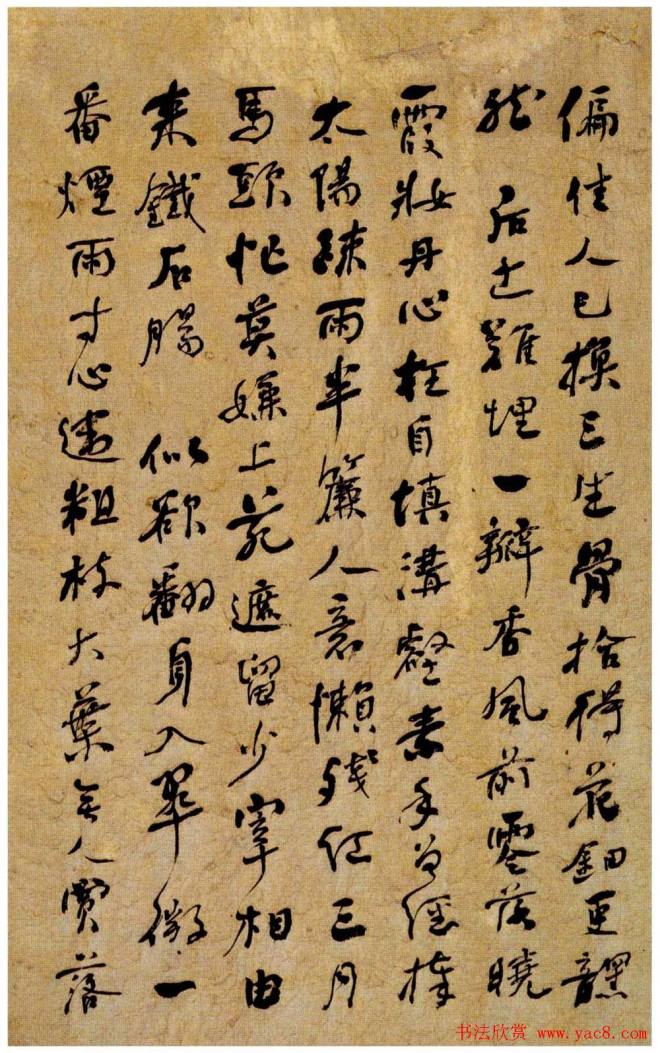 偏佳人已換三生骨拾得花鈿更黯
然 后土難埋一瓣香風前零落曉
霞妝丹心枉自填溝壑素手曾經捧
太陽疎雨半簾人意懶殘紅三月
馬頭忙莫嫌上苑遮留少宰相由
来鐵石腸 似欲翻身入翠微一
番煙雨寸心違粗枝大葉無人賞落
书法欣赏 www.yac8.com